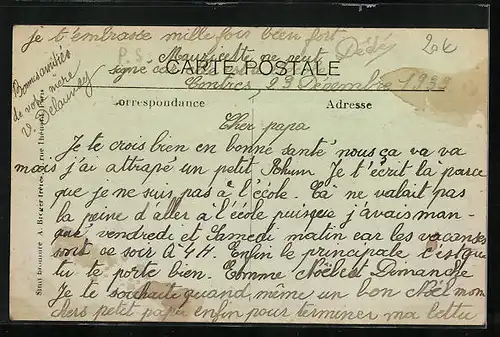 je t'embrasse mille fois bien fort
Dédé
20€
P.S. Mauricette ne peut
signé
CARTE POSTALE
Contres, 23 Décembre 1939
Correspondance
Adresse
Bons amitiés
de votre mère
V. Delaunay
Cher papa
Je te crois bien en bonne santé nous ça va va
mais j'ai attrapé un petit Rhum. Je t'écrit là parce
que je ne suis pas à l'école. Cà ne valait pas
la peine d'aller à l'école puisque j'avais man-
qué vendredi et Samedi matin car les vacances
sont ce soir à 4H. Enfin le principale c'est que
tu te porte bien. Comme Noël est Dimanche
Je te souhaite quand même un bon Noël mon
chers petit papa enfin pour terminer ma lettre
A. Breger frères, rue Thévenot